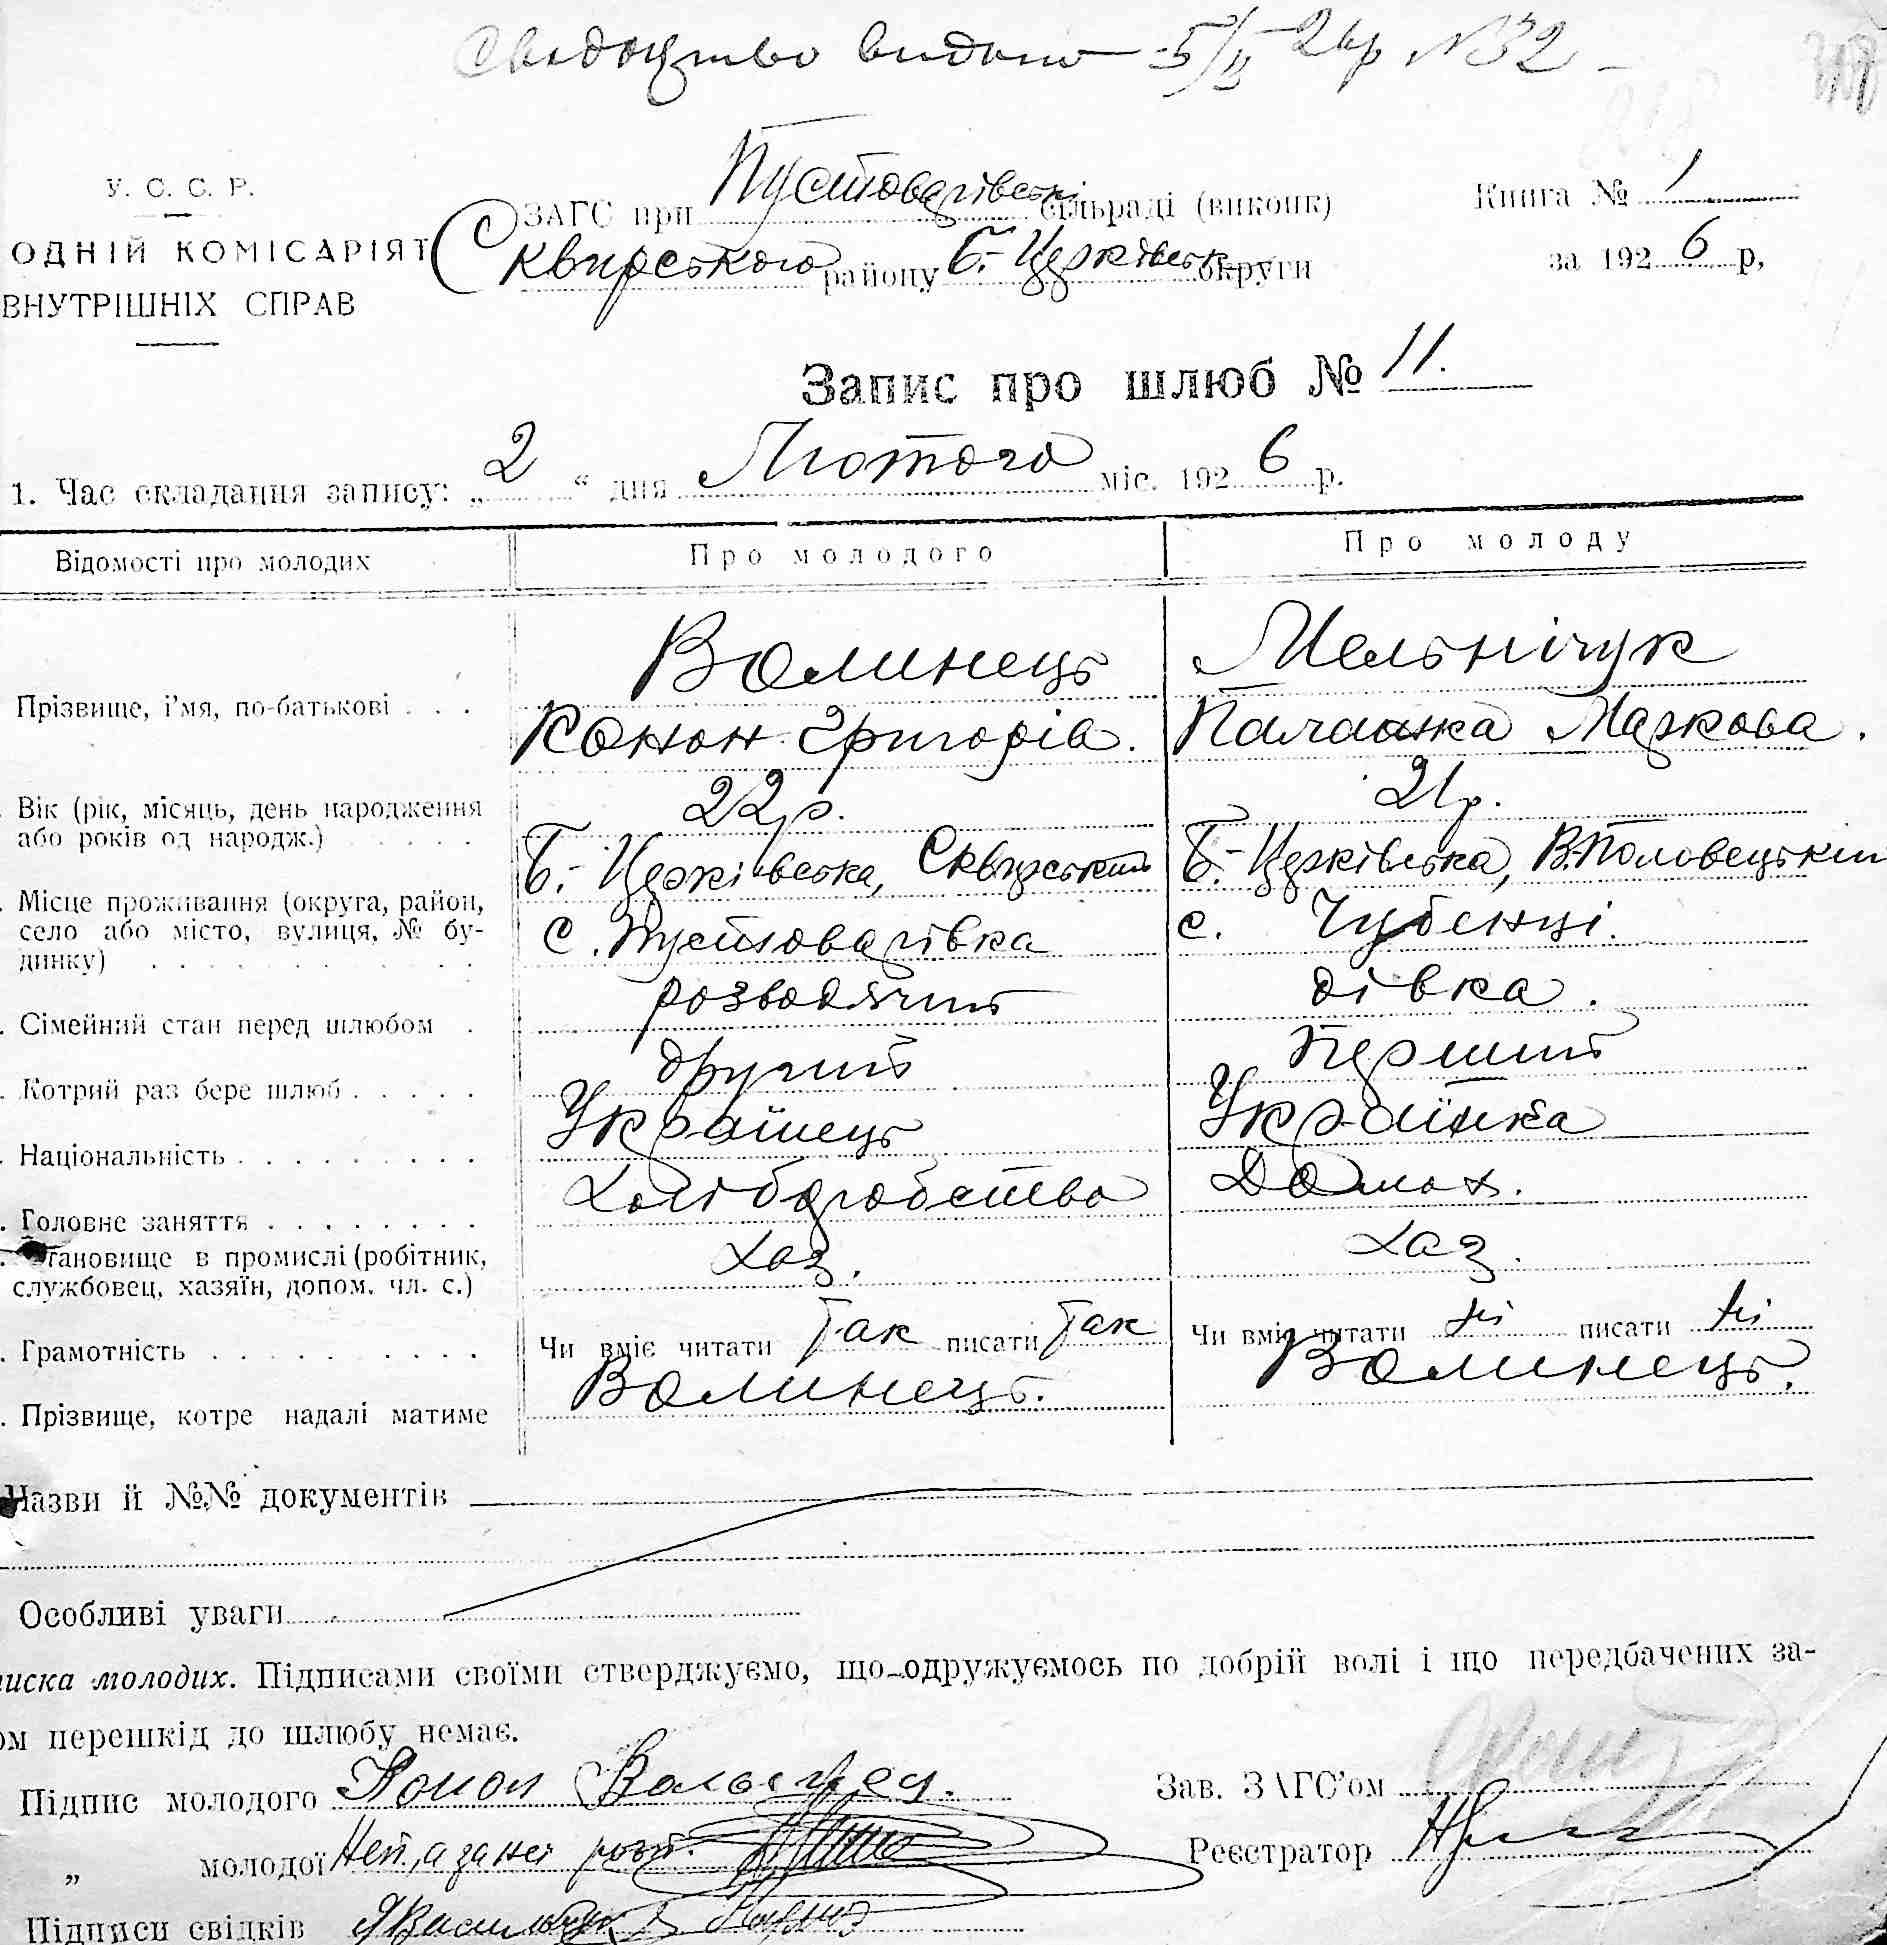 Свидоцтво видано 5/II 26р №32
У. С. С. Р.
ОДНІЙ КОМІСАРІЯТ
ВНУТРІШНІХ СПРАВ
ЗАГС при Пустоварівськ сільраді (виконк)
Сквирського району Б.-Церківськ округи
Книга № 1
за 1926 р,
Запис про шлюб № 11.
1. Час складання запису: „2“ дня Лютого міс. 1926 р.
Відомості про молодих Про молодого Про молоду
Прізвище, і'мя, по-батькові . . . Волинець Мельнічук
Конон Григорів. Палажка Маркова.
Вік (рік, місяць, день народження або років од народж.) 22р. 21р.
Місце проживання (округа, район, село або місто, вулиця, № будинку) Б.-Церківська, Сквирський Б.-Церківська, В.Половецький
с. Пустоварівка с. Чубенці.
Сімейний стан перед шлюбом . розводячий дівка.
Котрий раз бере шлюб . . . . . другий Перший
Національність . . . . . . . . . Українець Українка
Головне заняття . . . . . . . . Хліборобство Домох.
тановище в промислі (робітник, службовец, хазяїн, допом. чл. с.) Хаз. Хаз.
Грамотність . . . . . . . . . . Чи вміє читати Так писати Так Чи вміє читати ні писати ні
Прізвище, котре надалі матиме Волинець. Волинець.
Назви й №№ документів
Особливі уваги
иска молодих. Підписами своїми стверджуємо, що одружуємось по добрій волі і що передбачених за-
ом перешкід до шлюбу немає.
Підпис молодого Конон Волынец.
Зав. ЗАГС'ом
„ молодої Неп., а за неї розп.
Реєстратор
Підписи свідків Я Васильчук